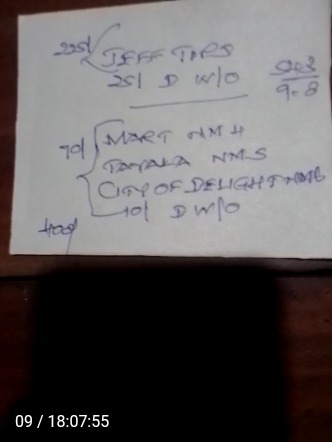 225/ JEFF TOPS
25/ D W/O
943
9.8
70/ MART NMH
TAYALA NMS
CITY OF DELIGHT NMB
10/ D W/O
400/
09 / 18:07:55